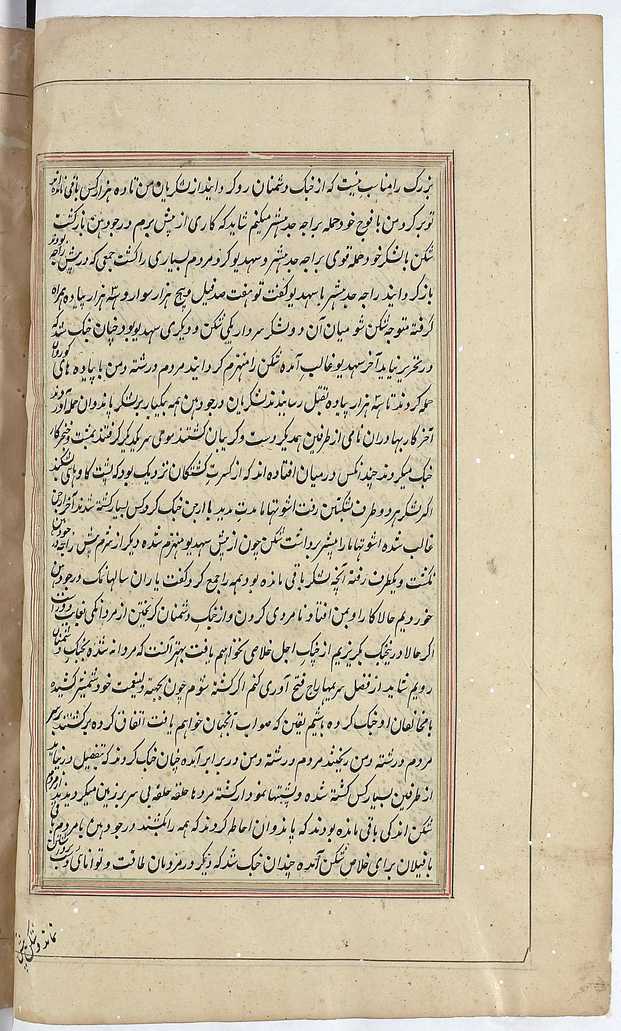 بزرک را مناسب نیست که از جنک دشمنان رو کردانیند از لشکریان من تا ده هزار کس باقی مانده اند
تو برکرد من با فوج خود حمله بر راجه جدهشتر میکنم شاید که کاری از پیش برم درجودهن بازکشت
شکن با لشکر خود حمله قوی بر راجه جدهشتر و سهدیو کرد و مردم بسیاری را کشت جمعی که در پیش راجه بودند
باز کردانیند راجه جدهشتر با سهدیو کفت تو هفت صد فیل و پنج هزار سوار و سه هزار پیاده همراه
کرفته متوجه شکن شو میان آن دو لشکر سردار یکی شکن و دیکری سهدیو بود چنان جنک شد که
در تحریر نیاید آخر سهدیو غالب آمده شکن را منهزم کردانیند مردم درشته دمن با پیاده های کوروان
حمله کردند تا سه هزار پیاده بقتل رسانیدند لشکریان درجودهن همه بیکبار بر لشکر پاندوان حمله آوردند
آخر کار بهادران نامی از طرفین همدیکر دست و کریبان کشتند موی سر یکدیکر کرفتند بمشت و خنجر کار
جنک میکردند چندانکس درمیان افتاده اند که از کثرت کشتکان نزدیک بود که پشت کاو ماهی بشکند
اکر لشکر هر دو طرف بشکستن رفت اشوتهاما مدت مدید با ارجن جنک کرد کس بسیار کشته شدند آخر ارجن
غالب شده اشوتهاما را پیشتر برداشت شکن چون از پیش سهدیو منهزم شده دیکر از شرم پیش راجه درجودهن
نکشت و یکطرف رفته آنچه لشکر باقی مانده بود همه را جمع کرد و کفت یاران سالها نمک درجودهن
خوردیم حالا کار او بمن افتاد نامردی کردن و از جنک دشمنان کریختن از مردانکی بغایت دور است
اکر حالا در نیجنک بکریزیم از جنک اجل خلاصی نخواهیم یافت بهتر آنست که مردانه شده بجنک دشمنان
رویم شاید از فضل سریمهاراج فتح آوری کنم اکر کشته شوم چون بجهة ولینعمت خود شمشیر کشیده
با مخالفان او جنک کرده باشیم یقین که صواب آنجهان خواهیم یافت اتفاق کرده برکشتند بر سر
مردم درشته دمن ریختند مردم درشته دمن در برابر آمده چنان جنک کردند که تفصیل در نیاید
از طرفین بسیار کس کشته شده و پشتها نمودار کشته مردها حلقه حلقه بی سر بر زمین میکردیدند از مردم
شکن اندکی باقی مانده بودند که پاندوان احاطه کردند که همه را کشتند درجودهن با مردم باقی
با فیلان برای خلاص شکن آمده چندان جنک شد که دیکر در مردمان طاقت و توانای دست بردن
نماند و شکن پیش